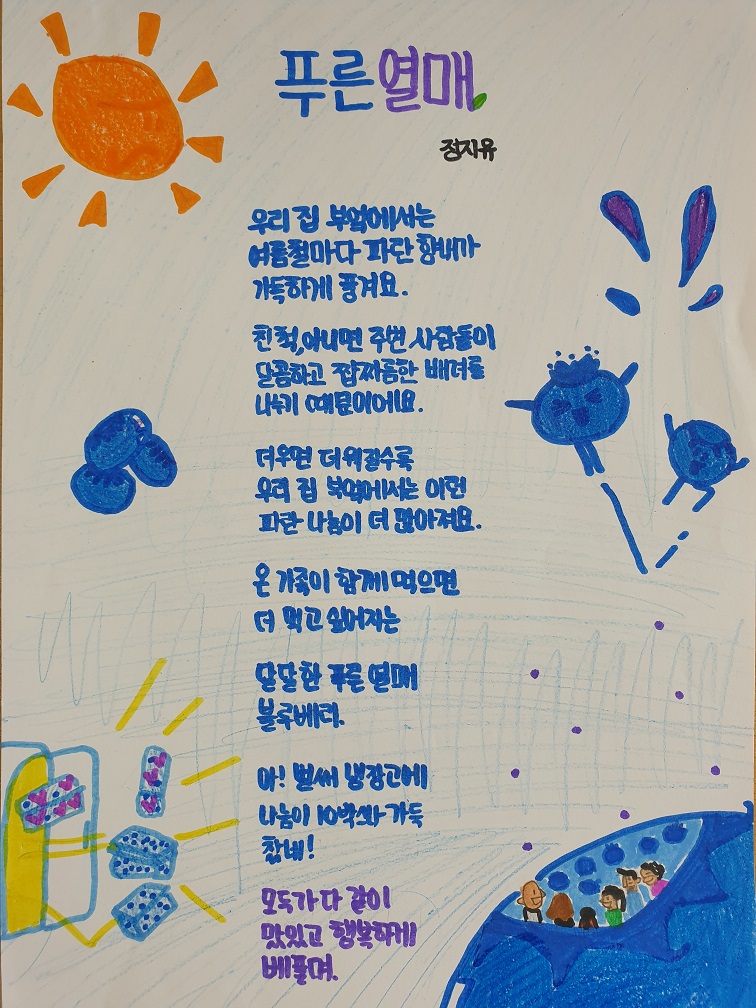 푸른열매
정지유
우리 집 부엌에서는
여름철마다 파란 향내가
가득하게 풍겨요.
친척, 아니면 주변 사람들이
달콤하고 짭짜름한 배려를
나누기 때문이에요.
더우면 더워질수록
우리 집 부엌에서는 이런
파란 나눔이 더 많아져요.
온 가족이 함께 먹으면
더 먹고 싶어지는
달달한 푸른 열매
블루베리.
아! 벌써 냉장고에
나눔이 10박스나 가득
찼네!
모두가 다 같이
맛있고 행복하게
베풀며.